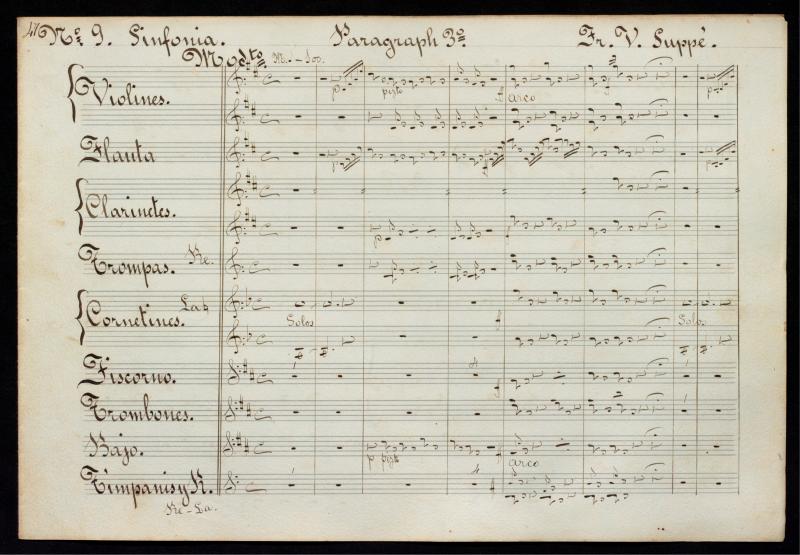 47 Nº 9. Sinfonia. Paragraph 3º Fr. V. Suppé.
Modto
Violines.
p pizto
arco
f
Flauta
p
f
p
Clarinetes.
p
Trompas. Re.
Cornetines. La♮
Solos f Solos
Fiscorno.
f
Trombones.
Bajo.
p pizto f arco
Timpanis y R.
Re-La.